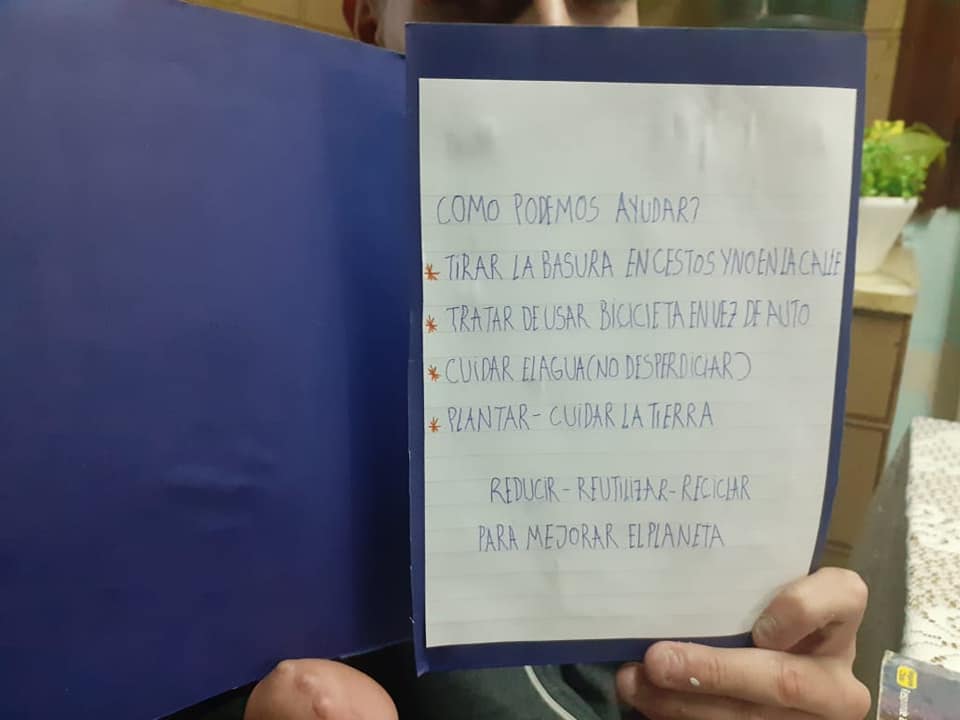 COMO PODEMOS AYUDAR?
* TIRAR LA BASURA EN CESTOS Y NO EN LA CALLE
* TRATAR DE USAR BICICLETA EN VEZ DE AUTO
* CUIDAR EL AGUA (NO DESPERDICIAR)
* PLANTAR - CUIDAR LA TIERRA
REDUCIR - REUTILIZAR - RECICLAR
PARA MEJORAR EL PLANETA